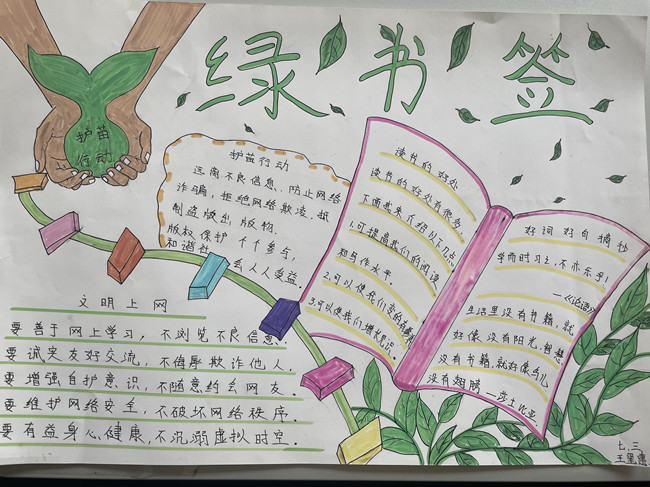 绿书签
护苗
行动
护苗行动
远离不良信息，防止网络
诈骗，拒绝网络欺凌，抵
制盗版出版物，
版权保护个个参与，
和谐社会人人受益。
读书的好处
读书的好处有很多
下面其来介绍以下几点：
1.可提高我们的阅读
和写作水平
2.可以使我们变的有修养
3.可以使我们增长见识。
好词好句摘抄
学而时习之，不亦乐乎！
—《论语》
生活里没有书籍，就
好像没有阳光，智慧
没有书籍，就好像鸟儿
没有翅膀—莎士比亚.
文明上网
要善于网上学习，不浏览不良信息。
要诚实友好交流，不侮辱欺诈他人。
要增强自护意识，不随意约会网友。
要维护网络安全，不破坏网络秩序。
要有益身心健康，不沉溺虚拟时空。
七.三